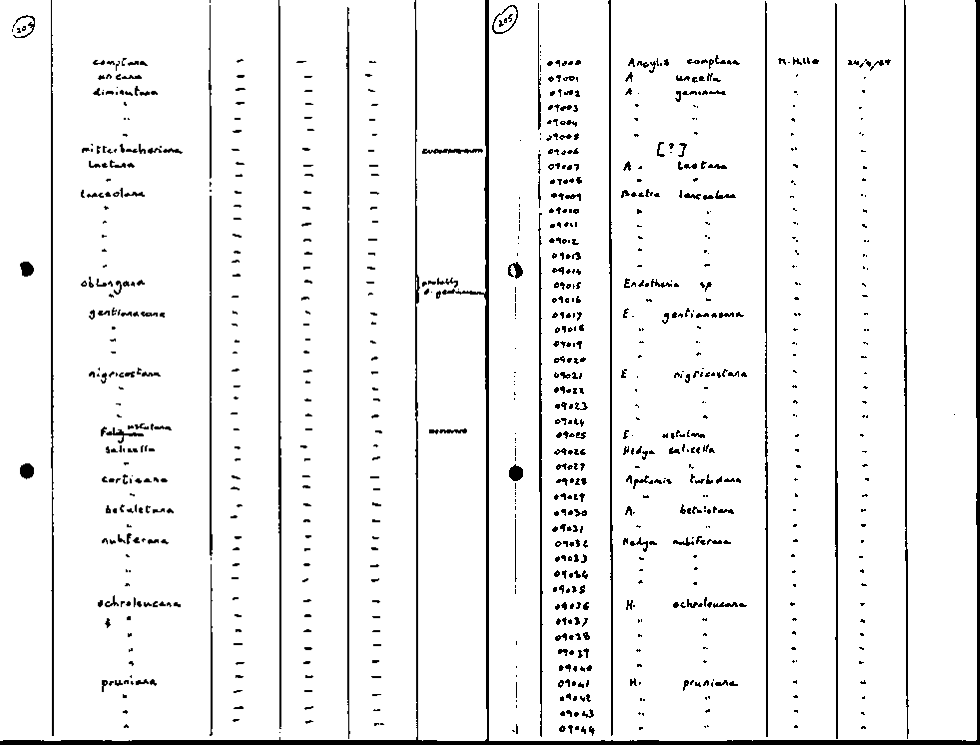 205
comptana
uncana
diminutana
"
"
"
mitterbacheriana
laetana
"
lanceolana
"
"
"
"
"
oblongana probably
"
gentianaeana
"
"
"
nigricostana
"
"
"
ustulana
salicella
"
corticana
"
betuletana
"
nubiferana
"
"
"
ochroleucana
"
"
"
"
pruniana
"
"
"
205
09000 Ancylis comptana M. Hills
09001 A uncella " "
09002 A. geminana " "
09003 " " " "
09004 " " " "
09005 " " " "
09006 [?] " "
09007 A. laetana " "
09008 " " " "
09009 Bactra lanceolana " "
09010 " " " "
09011 " " " "
09012 " " " "
09013 " " " "
09014 " " " "
09015 Endothenia sp " "
09016 " " " "
09017 E. gentianaeana " "
09018 " " " "
09019 " " " "
09020 " " " "
09021 E nigricostana " "
09022 " " " "
09023 " " " "
09024 " " " "
09025 E. ustulana " "
09026 Hedya salicella " "
09027 " " " "
09028 Apotomis turbidana " "
09029 " " " "
09030 A. betuletana " "
09031 " " " "
09032 Hedya nubiferana " "
09033 " " " "
09034 " " " "
09035 " " " "
09036 H. ochroleucana " "
09037 " " " "
09038 " " " "
09039 " " " "
09040 " " " "
09041 H. pruniana " "
09042 " " " "
09043 " " " "
09044 " " " "